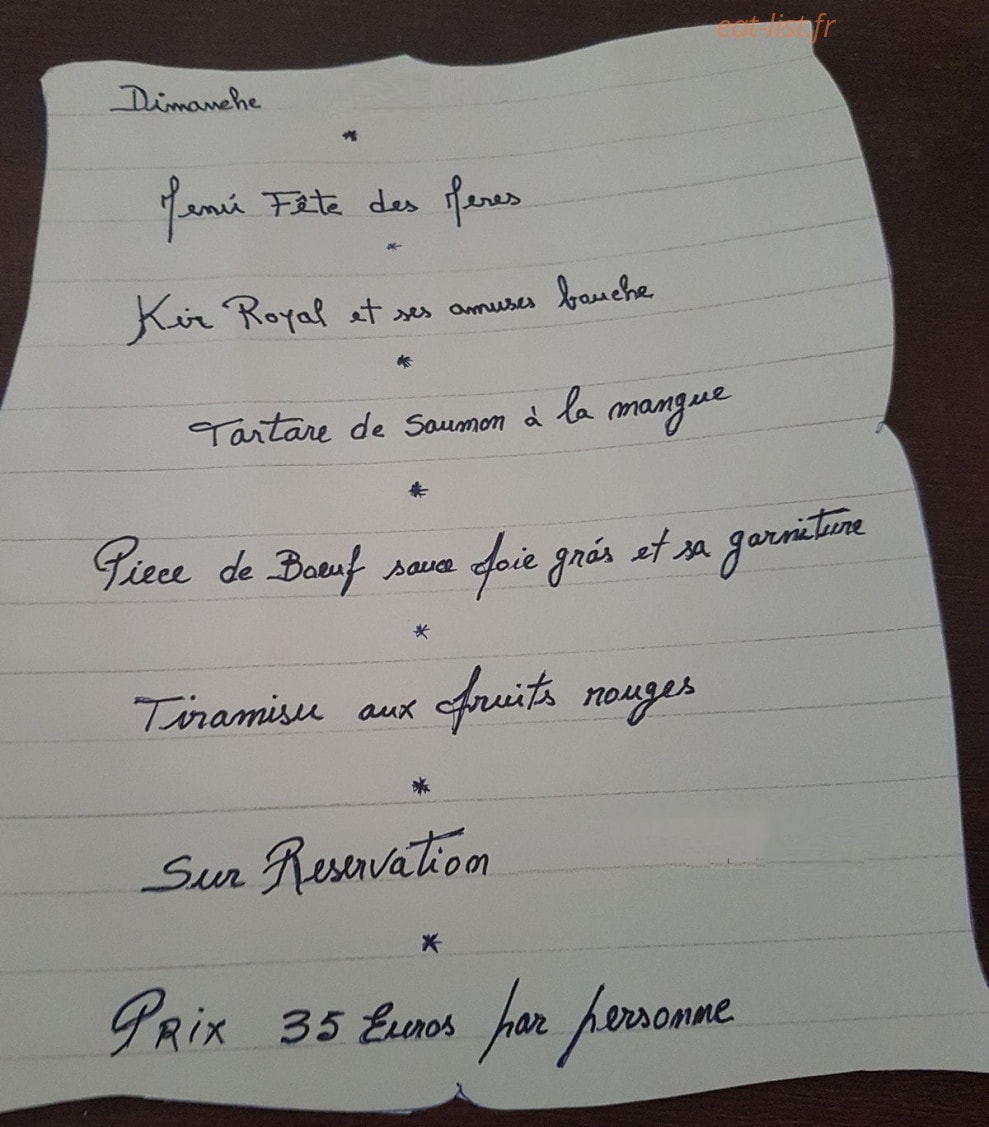 eat-list.fr
Dimanche
*
Menú Fête des Meres
*
Kir Royal et ses amuses bouche
*
Tartare de Saumon à la mangue
*
Piece de Boeuf sauce foie grás et sa garniture
*
Tiramisu aux fruits rouges
*
Sur Reservation
*
PRix 35 Euros par personne